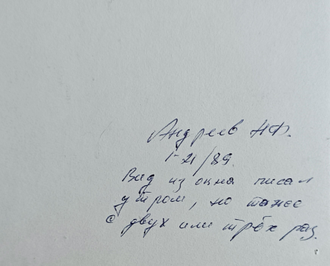 Андреев Н.Ф.
1-21/89.
Вид из окна писал
утром, но также
с двух или трёх раз.